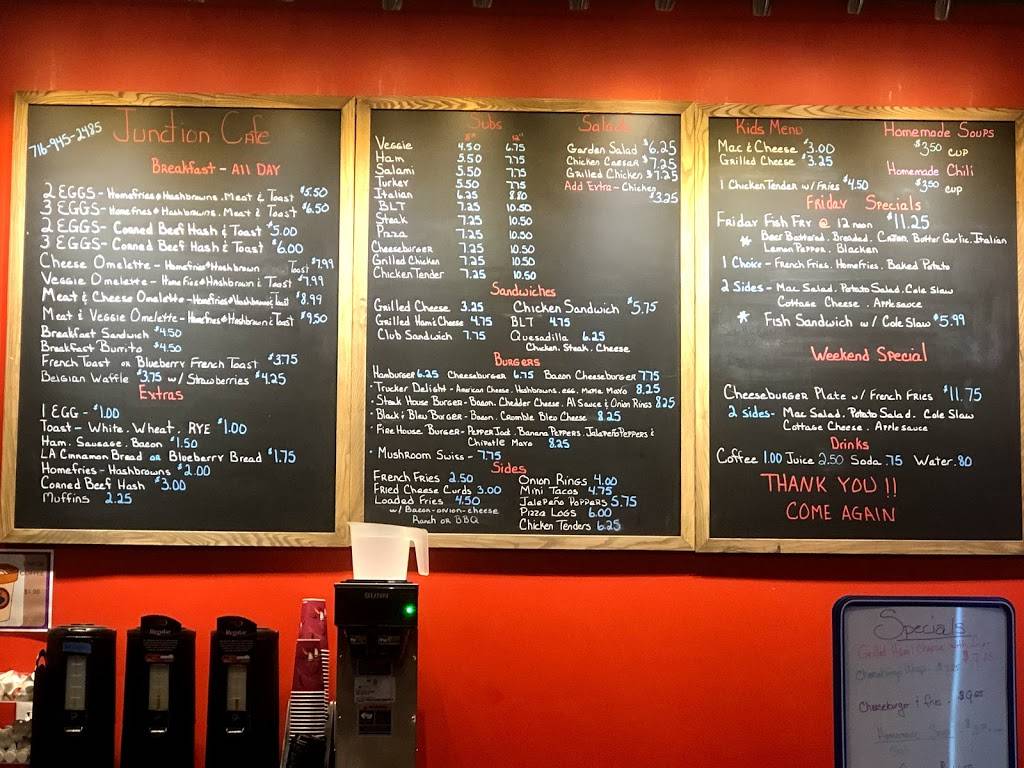 716-945-2485
Junction Cafe
Breakfast - All DAY
2 EGGS - Homefries or Hashbrowns. Meat & Toast $5.50
3 EGGS - Homefries or Hashbrowns. Meat & Toast $6.50
2 EGGS - Corned Beef Hash & Toast $5.00
3 EGGS - Corned Beef Hash & Toast $6.00
Cheese Omelette - Homefries or Hashbrown Toast $7.99
Veggie Omelette - Homefries or Hashbrown & Toast $7.99
Meat & Cheese Omelette - Homefries or Hashbrown & Toast $8.99
Meat & Veggie Omelette - Homefries or Hashbrown & Toast $9.50
Breakfast Sandwich $4.50
Breakfast Burrito $4.50
French Toast or Blueberry French Toast $3.75
Belgian Waffle $3.75 w/ Strawberries $4.25
Extras
1 EGG - $1.00
Toast - White. Wheat. RYE $1.00
Ham. Sausage. Bacon $1.50
LA Cinnamon Bread or Blueberry Bread $1.75
Homefries - Hashbrowns $2.00
Corned Beef Hash $3.00
Muffins 2.25
Subs
8" 12"
Veggie 4.50 6.75
Ham 5.50 7.75
Salami 5.50 7.75
Turkey 5.50 7.75
Italian 6.25 8.80
BLT 7.25 10.50
Steak 7.25 10.50
Pizza 7.25 10.50
Cheeseburger 7.25 10.50
Grilled Chicken 7.25 10.50
Chicken Tender 7.25 10.50
Salads
Garden Salad $6.25
Chicken Caesar $7.25
Grilled Chicken $7.25
Add Extra - Chicken
$3.25
Sandwiches
Grilled Cheese 3.25 Chicken Sandwich $5.75
Grilled Ham & Cheese 4.75 BLT 4.75
Club Sandwich 7.75 Quesadilla 6.25
Chicken. Steak. Cheese
Burgers
Hamburger 6.25 Cheeseburger 6.75 Bacon Cheeseburger 7.75
· Trucker Delight - American Cheese. Hashbrowns. egg. Mayo 8.25
· Steak House Burger - Bacon. Chedder Cheese. A1 Sauce & Onion Rings 8.25
· Black & Bleu Burger - Bacon. Crumble Bleu Cheese 8.25
· Fire House Burger - Pepper Jack. Banana Peppers. Jalapeño Peppers &
Chipotle Mayo 8.25
· Mushroom Swiss - 7.75
Sides
French Fries 2.50 Onion Rings 4.00
Fried Cheese Curds 3.00 Mini Tacos 4.75
Loaded Fries 4.50 Jalapeño Poppers 5.75
w/ Bacon-onion-cheese Pizza Logs 6.00
Ranch or BBQ Chicken Tenders 6.25
Kids Menu
Mac & Cheese $3.00
Grilled Cheese $3.25
1 Chicken Tender w/ Fries $4.50
Homemade Soups
$3.50 cup
Homemade Chili
$3.50 cup
Friday Specials
Friday Fish Fry @ 12 noon $11.25
* Beer Battered. Breaded. Cajun. Butter Garlic. Italian
Lemon Pepper. Blacken
1 Choice - French Fries. Homefries. Baked Potato
2 Sides - Mac Salad. Potato Salad. Cole Slaw
Cottage Cheese. Applesauce
* Fish Sandwich w/ Cole Slaw $5.99
Weekend Special
Cheeseburger Plate w/ French Fries $11.75
2 sides - Mac Salad. Potato Salad. Cole Slaw
Cottage Cheese. Applesauce
Drinks
Coffee 1.00 Juice 2.50 Soda .75 Water .80
THANK YOU!!
COME AGAIN
BUNN
Regular
Regular
Specials
Grilled Ham & Cheese
Cheeseburger & fries
Homemade Soup